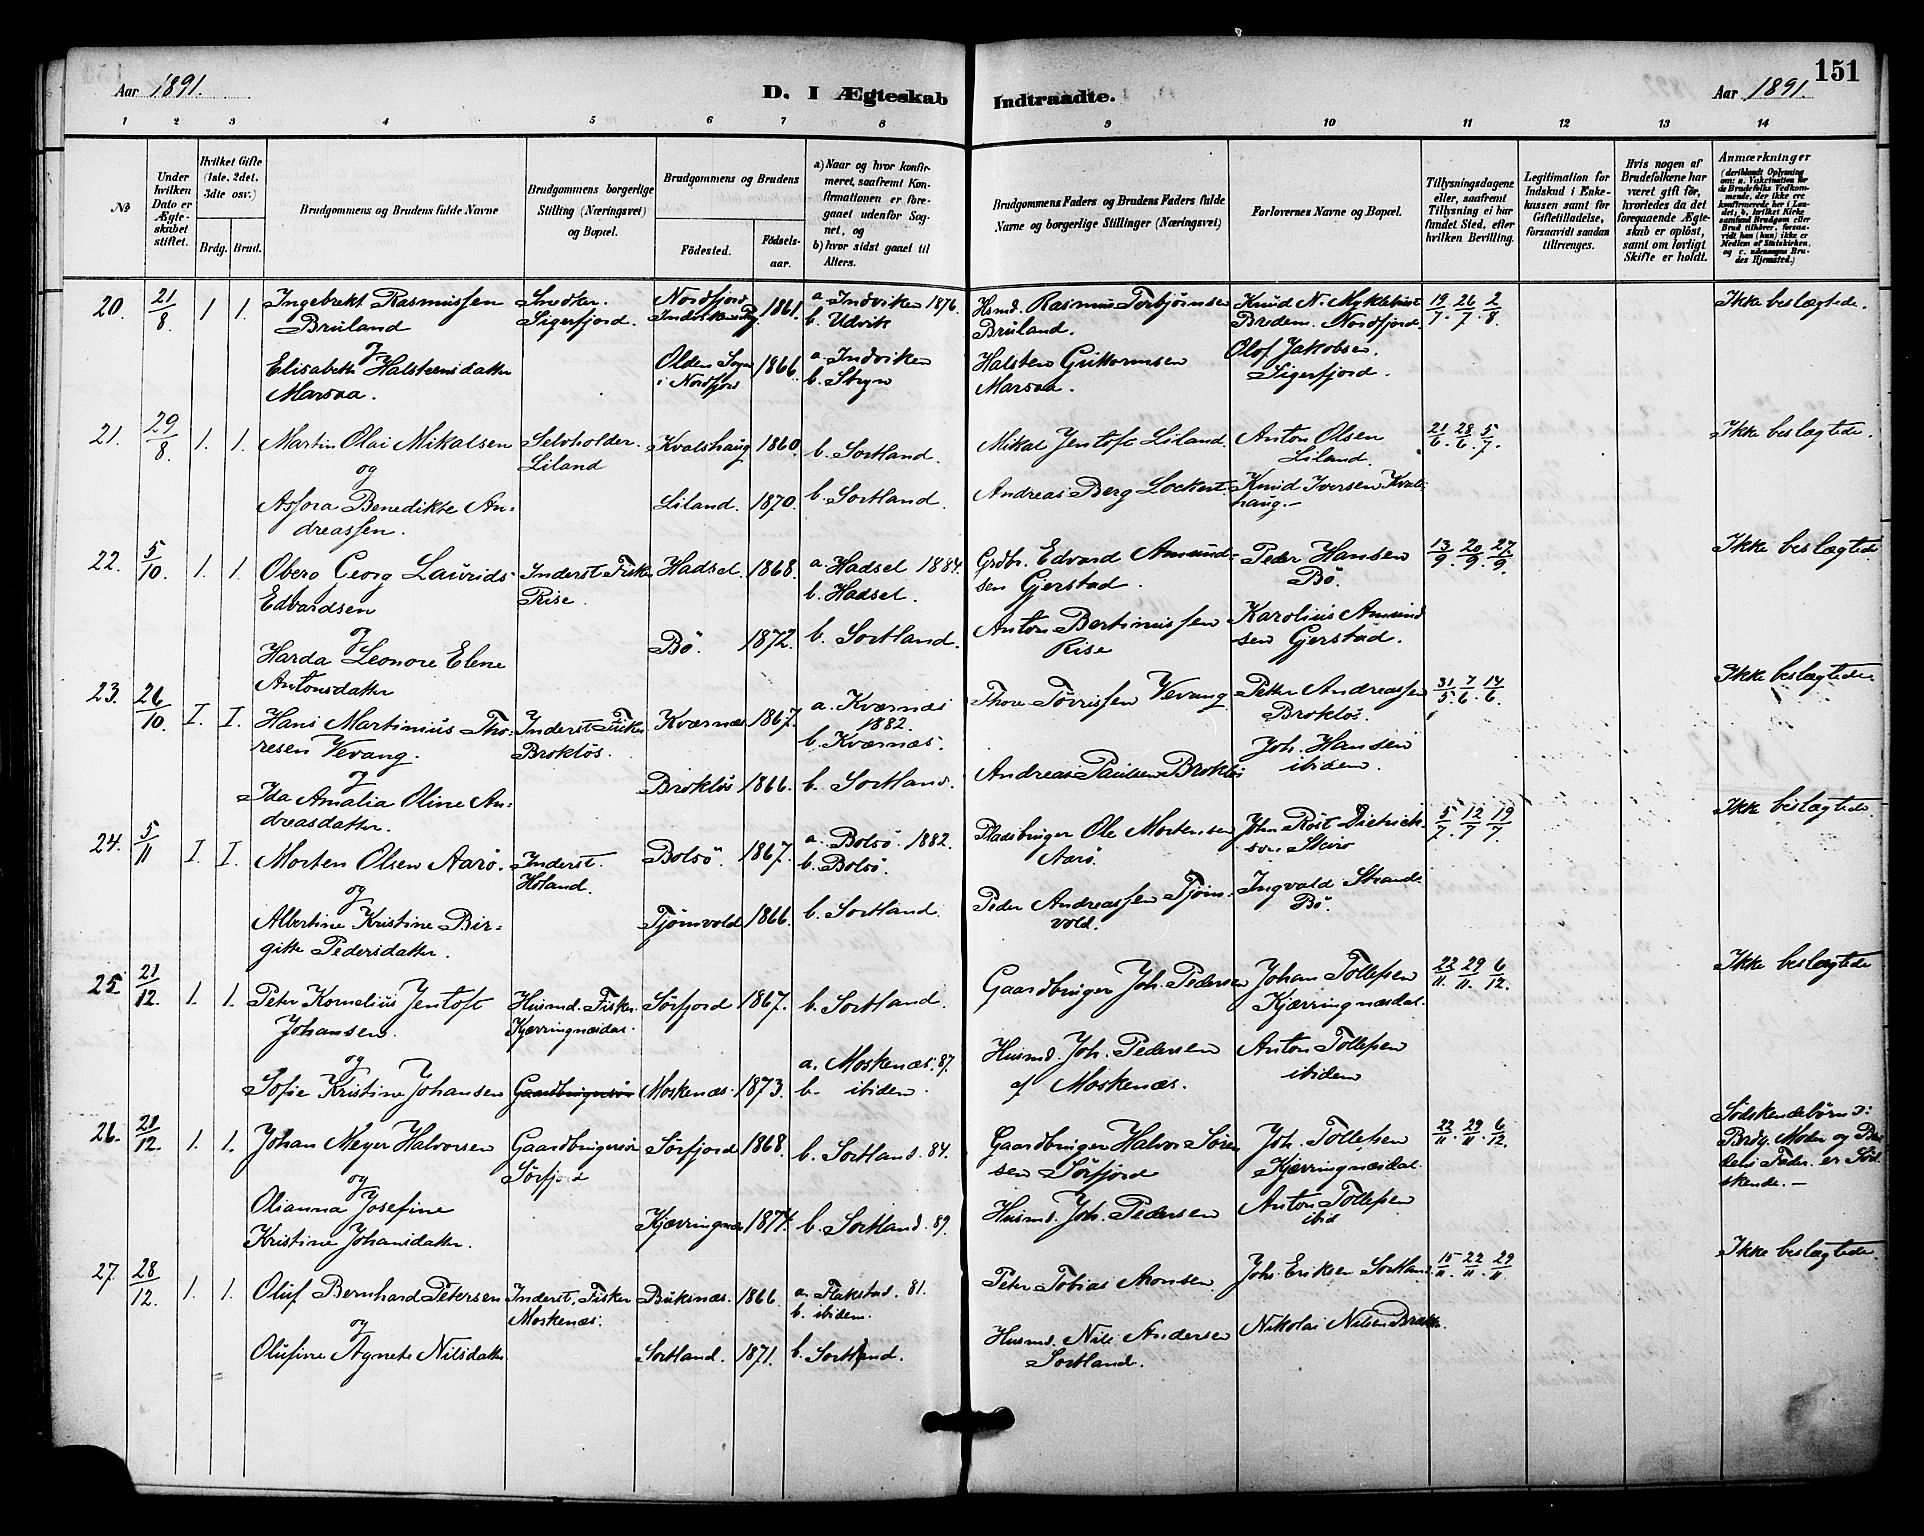 151
Aar 1891.
D. I Ægteskab Indtraadte.
Aar 1891.
1 2 3 4 5 6 7 8 9 10 11 12 13 14
No
Under hvilken Dato er Ægteskabet stiftet.
Hvilket Gifte (1ste, 2det, 3die osv.)
Brdg. Brud.
Brudgommens og Brudens fulde Navne
Brudgommens borgerlige Stilling (Næringsvei) og Bopæl.
Brudgommens og Brudens
Fødested.
Fødselsaar.
a) Naar og hvor konfirmeret, saafremt Konfirmationen er foregaaet udenfor Sognet, og
b) hvor sidst gaaet til Alters.
Brudgommens Faders og Brudens Faders fulde Navne og borgerlige Stillinger (Næringsvei)
Forlovernes Navne og Bopæl.
Tillysningsdagene eller, saafremt Tillysning ei har fundet Sted, efter hvilken Bevilling.
Legitimation for Indskud i Enkekassen samt for Giftetilladelse, forsaavidt saadan tiltrænges.
Hvis nogen af Brudefolkene har været gift før, hvorledes da det foregaaende Ægteskab er opløst, samt om lovligt Skifte er holdt.
Anmærkninger (deriblandt Oplysning om: a. Vakcination for de Brudefolks Vedkommende, der ikke ere konfirmerede her i Landet; b. hvilket Kirkesamfund Brudgom eller Brud tilhører, forsaavidt han (hun) ikke er Medlem af Statskirken, og c. udensogns Brudes Hjemsted.)
20. 21/8. 1 1. Ingebrekt Rasmussen Bruland Snedker. Sigerfjord. Nordfjord Indvikens 1861. a. Indviken 1876. b. Udvik Hsmd. Rasmus Torbjørnsen Bruland. Knud N. Myklebust Bredem. Nordfjord 19/7. 26/7. 2/8 Ikke beslægtede.
og
Elisabeth Halstensdatter Marsaa. Olden Sogn i Nordfjord 1866. a. Indviken b. Stryn Halsten Guttormsen Marsaa. Olof Jakobsen. Sigerfjord.
21. 29/8. 1. 1. Martin Olai Mikalsen Selvholder. Liland Kvalshaug 1860. b. Sortland. Mikal Jentoft Liland. Anton Olsen Liland. 21/6. 28/6. 5/7. Ikke beslægtede.
og
Assora Benedikte Andreassen. Liland. 1870. b. Sortland. Andreas Berg Lockert. Knud Iversen Kvalshaug.
22. 5/10. 1. 1. Oberg Georg Laurids Edvardsen Inderst Fisker Rise. Hadsel. 1868. a. Hadsel 1884. b. Hadsel. Grdbr. Edvard Amundsen Gjerstad. Peder Hansen Bø. 13/9. 20/9. 27/9. Ikke beslægtede
og
Harda Leonore Elene Antonsdatter Bø. 1872. b. Sortland. Anton Bertinussen Rise Karolius Amundsen Gjerstad.
23. 26/10. I. I. Hans Martinius Thoresen Vevang. Inderst Fisker Brokløs. Kværnæs 1867. a. Kværnæs 1882. b. Kværnæs. Thore Torrissen Vevang Petter Andreassen Brokløs. 31/5. 7/6. 14/6. Ikke beslægtede.
og
Ida Amalia Oline Andreasdatter. Brokløs 1866. b. Sortland. Andreas Paulsen Brokløs Joh. Hansen ibidem.
24. 5/11 I. I. Morten Olsen Aarø. Inderst. Holand. Bolsø. 1867. a. Bolsø. 1882. b. Bolsø. Pladsbruger Ole Mortensen Aarø. John Røst Dietrichson Skivo 5/7. 12/7. 19/7. Ikke beslægtede
og
Albertine Kristine Birgitte Pedersdatter. Tjømvold 1866. b. Sortland. Peder Andreassen Tjømvold. Ingvald Strand Bø.
25. 21/12. 1. 1. Peter Kornelius Jentoft Johansen. Husmd. Fisker. Kjærringnæsdal. Sørfjord 1867. b. Sortland. Gaardbruger Joh. Pedersen Johan Tollefsen Kjærringnæsdal. 22/11. 29/11. 6/12. Ikke beslægtede
og
Sofie Kristine Johansen Gaardbrugersøn Moskenæs. 1873. a. Moskenæs. 87. b. ibidem. Husmd. Joh. Pedersen af Moskenæs. Anton Tollefsen ibidem
26. 21/12. 1. 1. Johan Meyer Halvorsen Gaardbrugersøn Sørfjord Sørfjord 1868. b. Sortland. 84. Gaardbruger Halvor Sørensen Sørfjord Joh. Tollefsen Kjærringnæsdal. 22/11. 29/11. 6/12. Sødskendebørn: Brdg. Moder og Brudens Fader er Sødskende.
og
Olianna Josefine Kristine Johansdatter. Kjærringnæs 1874. b. Sortland. 89. Husmd. Joh. Pedersen Anton Tollefsen ibid
27. 28/12. 1. 1. Oluf Bernhard Petersen Inderst, Fisker Moskenæs. Buksnæs. 1866. a. Flakstad. 81. b. ibidem. Peter Tobias Aronsen. Joh. Eriksen Sortland. 15/11. 22/11. 29/11 Ikke beslægtede.
og
Olufine Agnete Nilsdatter Sortland. 1871. b. Sortland. Husmd. Nils Andersen Sortland. Nikolai Nilsen